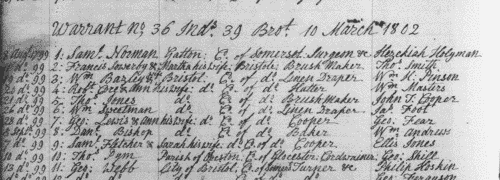 Warrant No. 36 Inds. 39 Brot. 10 March 1802
Augt. 99 1: Saml. Norman Yatton Co. of Somerset Surgeon & Hezekiah Holyman
do. 99 2: Francis & Martha his wife Bristol Brush Maker Thos. Smith
do. 99 3: Wm. Bazley & Bristol Co. of do. Linen Draper Wm. K. Pinson
do. 99 4: Robt. & Ann his wife do. Co. of do. Hatter Wm. Masters
do. 99 5: Thos. Jones do. Co. of do. Brush Maker John T. Cooper
do. 99 6: Wm. do. Co. of do. Linen Draper Jas. Foot
do. 99 7: Geo: Lewis & Ann his wife do. Co. of do. Cooper Geo: Fear
Sept. 99 8: Danl. Bishop do. Co. of do. Baker Wm. Andrews
7 do. 99 9: Saml. Fletcher & Sarah his wife do. Co. of do. Cooper Ellis Jones
10 do. 99 10: Thos. Pym Parish of Co. of Glocester Cordwainer Geo: Shill
13 do. 99 11: Geo: Webb City of Bristol, Co. of Turner & Philip Hoskin
Geo: Ferguson